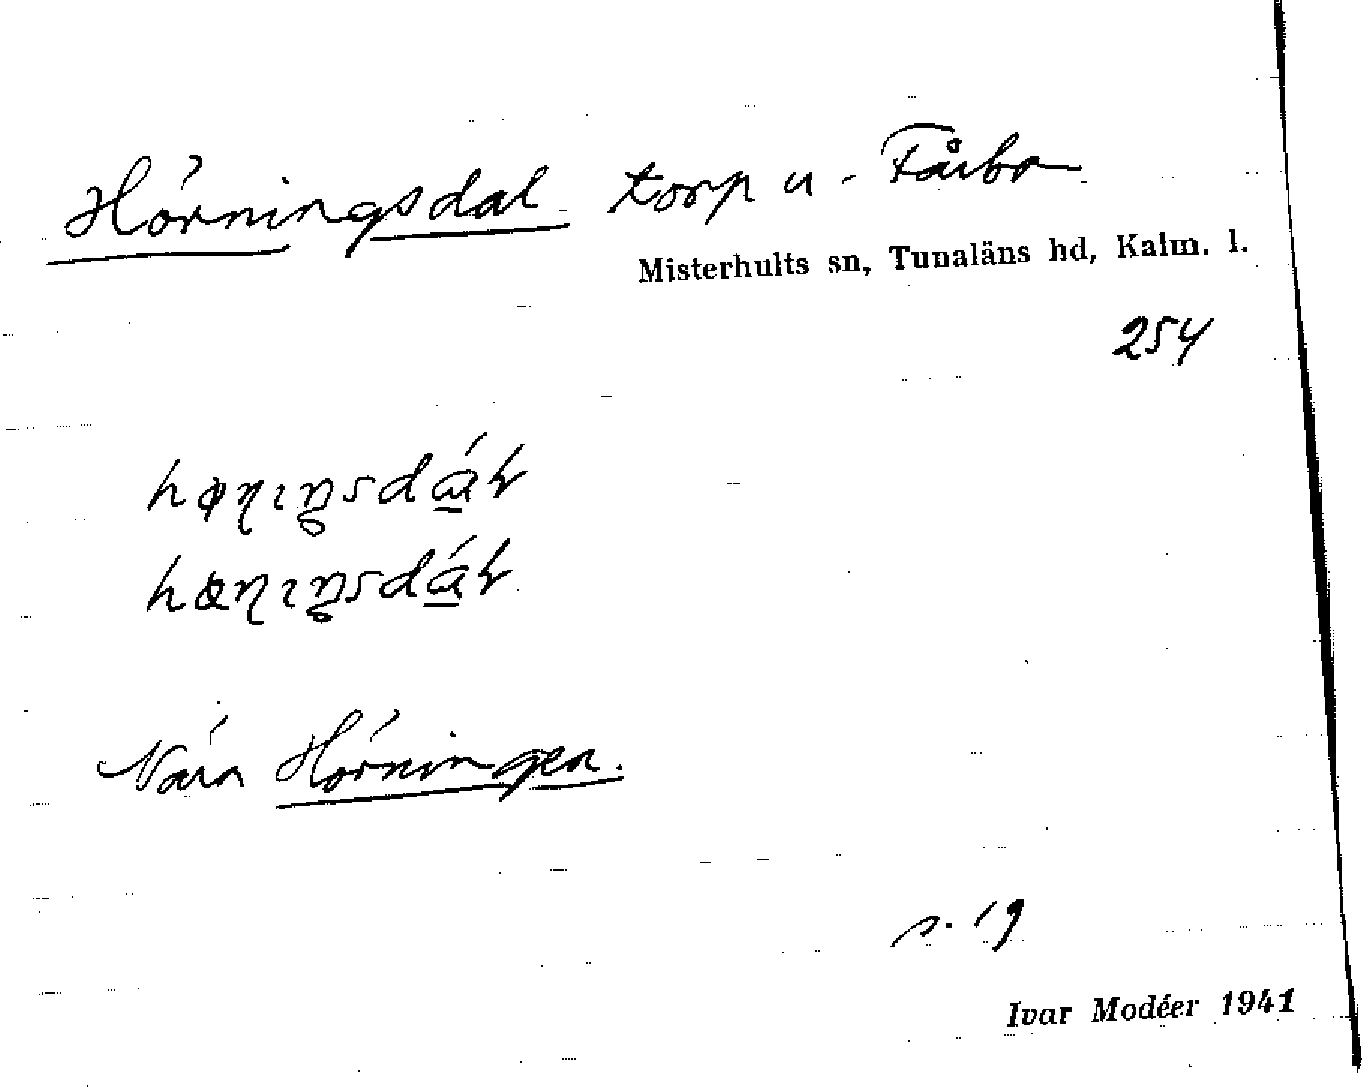 Hörningsdal torp u. Fårbo
Misterhults sn, Tunaläns hd, Kalm. l.
254
Nära Hörningen.
s. 19
Ivar Modéer 1941